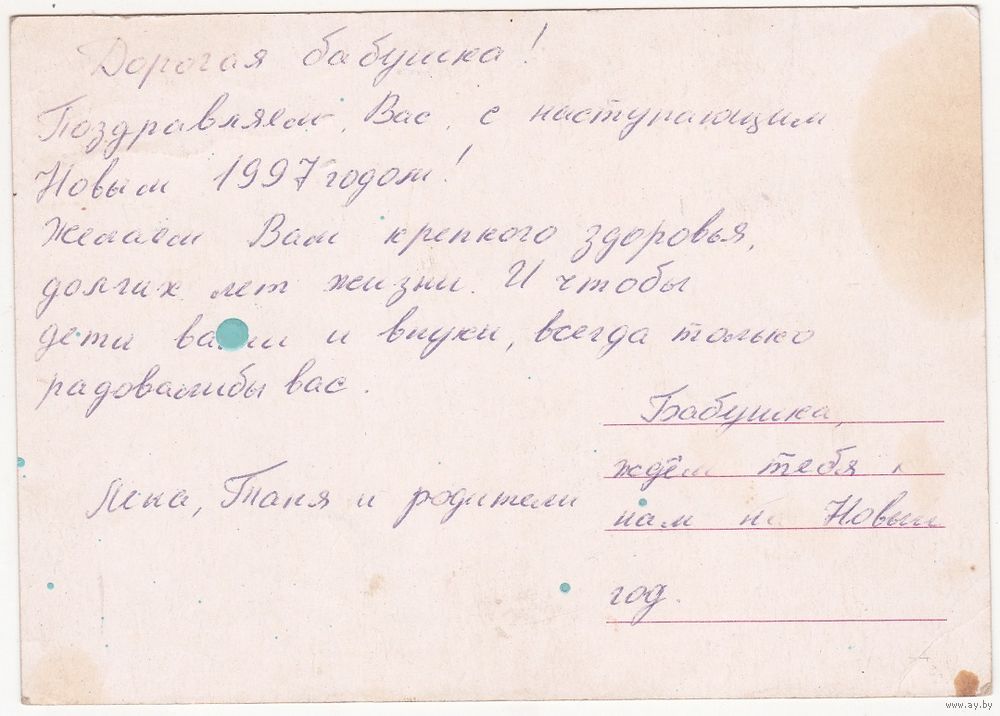 Дорогая бабушка!
Поздравляем Вас с наступающим
Новым 1997 годом!
Желаем Вам крепкого здоровья,
долгих лет жизни. И чтобы
дети ваши и внуки, всегда только
радовалибы вас.
Бабушка,
ждём тебя к
нам на Новый
год.
Лена, Таня и родители
www.ay.by